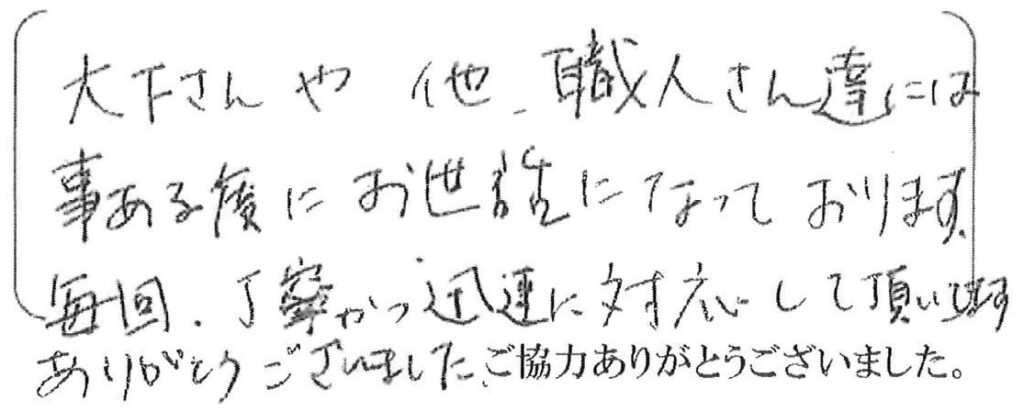 大下さんや 他、職人さん達には
事ある度にお世話になっております。
毎回、丁寧かつ迅速に対応して頂いてます
ありがとうございました。ご協力ありがとうございました。